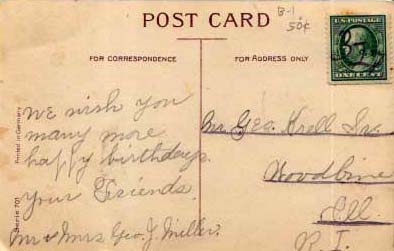 POST CARD
B-1
50¢
FOR CORRESPONDENCE
FOR ADDRESS ONLY
U.S. POSTAGE
ONE CENT
We wish you
many more
happy birthdays.
Your Friends
Mr & Mrs Geo. J. Miller.
Mr. Geo. Krell Sr.
Woodbine
Ill.
R. I.
Printed in Germany
Serie 701